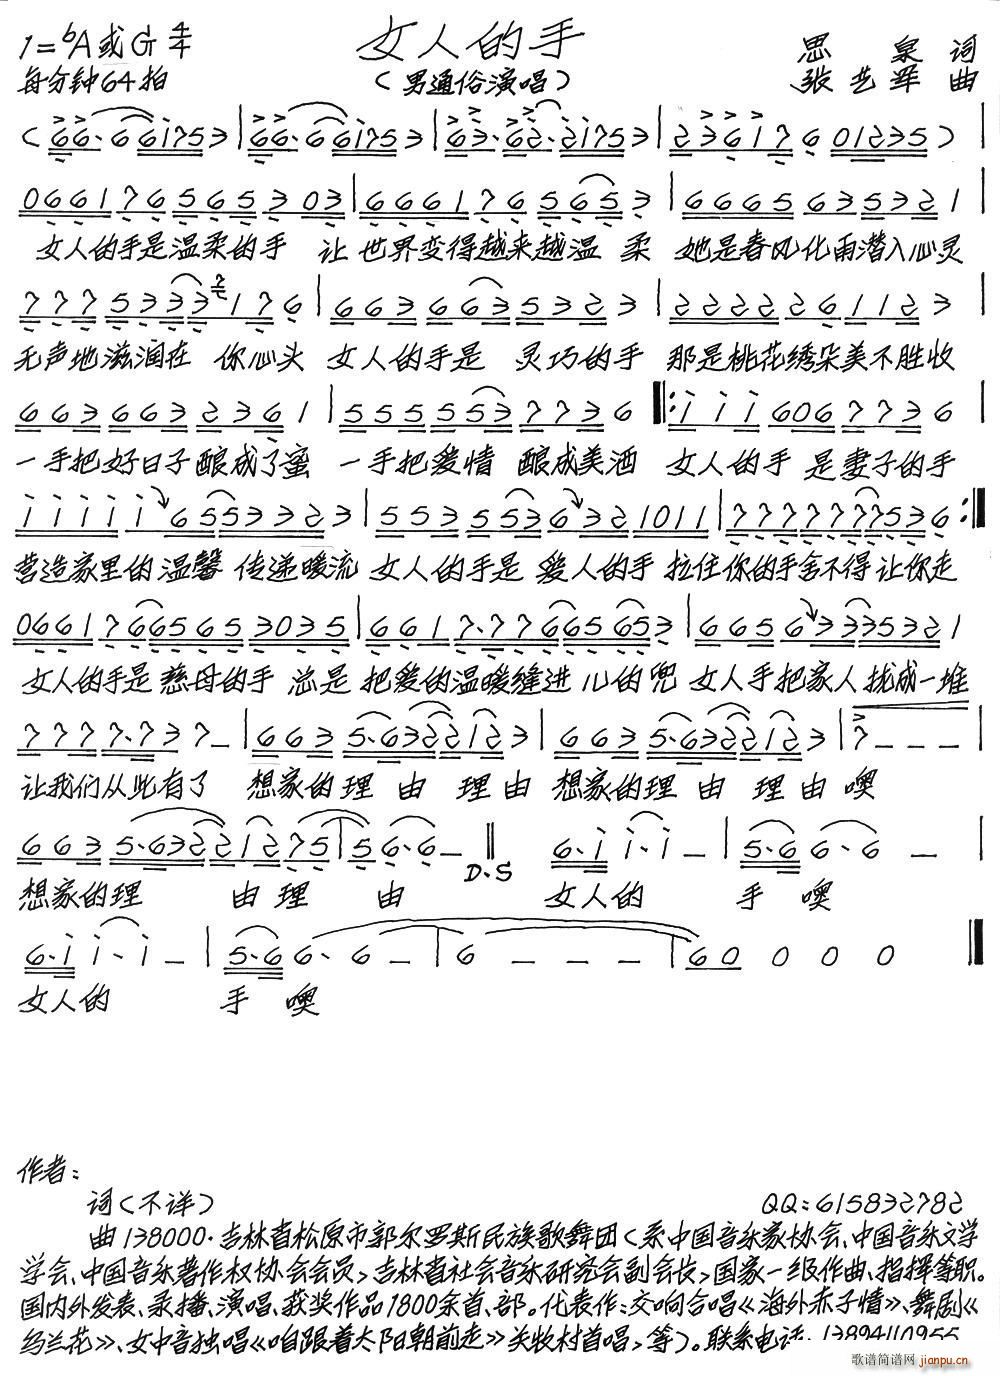 女人的手
1=♭A或G 4/4
思泉 词
每分钟64拍
(男通俗演唱)
张艺军 曲
女人的手是温柔的手 让 世界变得越来越温 柔 她是春风化雨潜入心灵
无声地滋润在 你心头 女人的手是 灵巧的手 那是桃花绣朵美不胜收
一手把好日子酿成了蜜 一手把爱情 酿成美酒 女人的手 是妻子的手
营造家里的温馨 传递暖流 女人的手是 爱人的手 拉住你的手舍不得让你走
女人的手是慈母的手 总是 把爱的温暖缝进 儿的兜 女人手把家人拢成一堆
让我们从此有了 想家的理 由 理由 想家的理 由 理由噢
D.S
想家的理 由理 由 女人的 手 噢
女人的 手 噢
作者:
词(不详)
QQ:615832782
曲138000.吉林省松原市郭尔罗斯民族歌舞团(系中国音乐家协会、中国音乐文学
学会、中国音乐著作权协会会员,吉林省社会音乐研究会副会长,国家一级作曲、指挥等职。
国内外发表、录播、演唱、获奖作品1800余首、部。代表作:交响合唱《海外赤子情》、舞剧《
乌兰花》、女中音独唱《咱跟着太阳朝前走》关牧村首唱,等)。联系电话:13894110955
歌谱简谱网 jianpu.cn